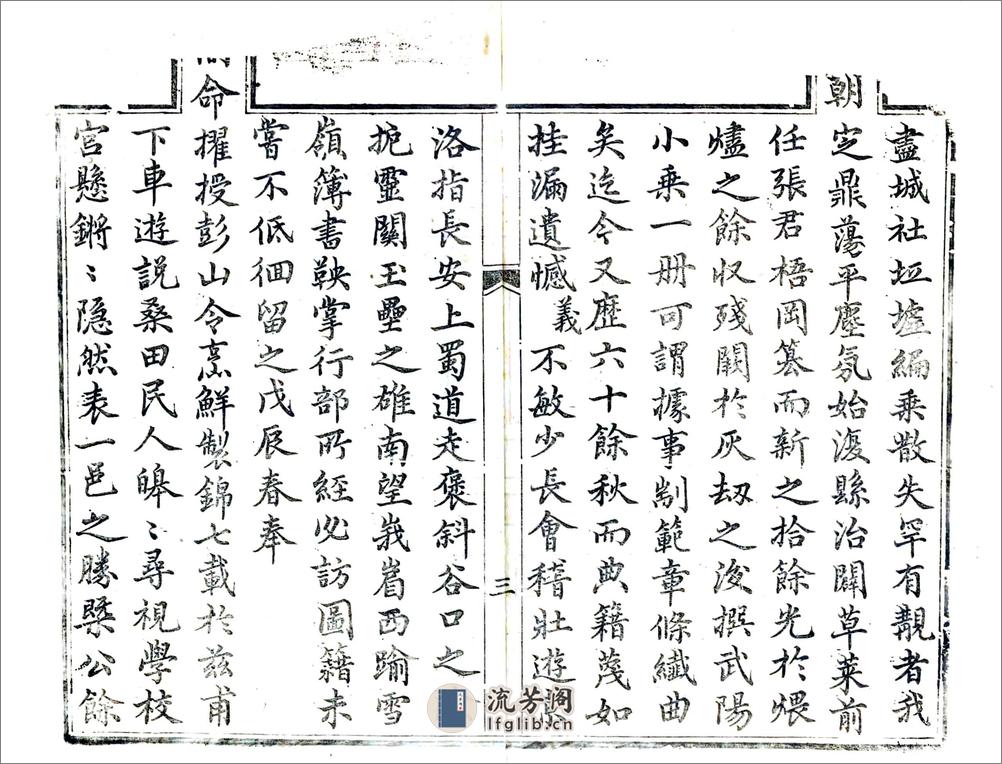 盡城社坵墟編乗散失罕有覩者我
朝
定鼎蕩平塵氛始復縣治闢草萊前
任張君梧岡篡而新之拾餘光於煨
燼之餘収残闕於灰刼之後撰武陽
小乗一册可謂據事剬範章條纎曲
矣迄今又歴六十餘秋而典籍蔑如
挂漏遺憾義不敏少長會稽壯遊
三
洛指長安上蜀道走褒斜谷口之
扼靈關玉壘之雄南望峩眉西踰雪
嶺簿書鞅掌行部所經必訪圖籍未
嘗不低徊留之戊辰春奉
命
擢授彭山令烹鮮製錦七載於兹甫
下車遊説桑田民人皞〻尋視學校
宫懸鏘〻隠然表一邑之勝槩公餘
流芳阁
lfglib.cn